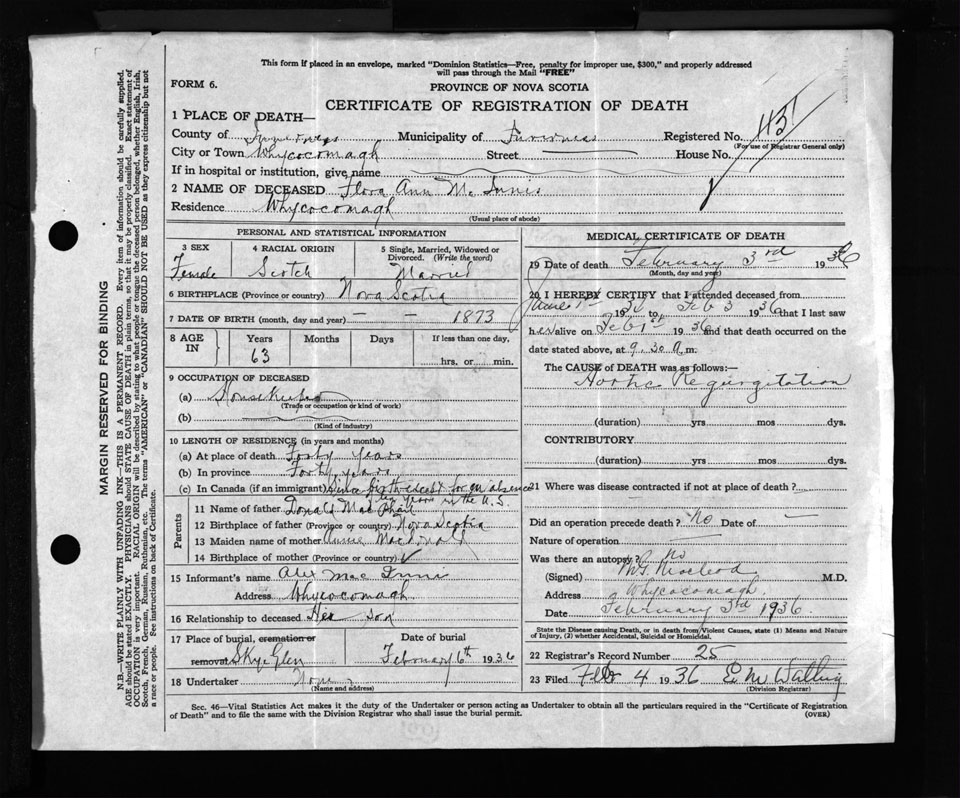 This form if placed in an envelope, marked "Dominion Statistics—Free, penalty for improper use, $300," and properly addressed
will pass through the Mail "FREE"
FORM 6.
PROVINCE OF NOVA SCOTIA
CERTIFICATE OF REGISTRATION OF DEATH
1 PLACE OF DEATH—
County of Inverness Municipality of Inverness Registered No.
(For use of Registrar General only)
City or Town Whycocomagh Street House No.
If in hospital or institution, give name
2 NAME OF DECEASED Flora Ann McInnis
Residence Whycocomagh
(Usual place of abode)
PERSONAL AND STATISTICAL INFORMATION
3 SEX 4 RACIAL ORIGIN 5 Single, Married, Widowed or
Divorced. (Write the word)
Female Scotch Married
6 BIRTHPLACE (Province or country) Nova Scotia
7 DATE OF BIRTH (month, day and year) — — 1873
8 AGE IN Years Months Days If less than one day,
63 hrs. or min.
9 OCCUPATION OF DECEASED
(a) Housekeeper
(Trade or occupation or kind of work)
(b)
(Kind of industry)
10 LENGTH OF RESIDENCE (in years and months)
(a) At place of death Forty years
(b) In province Forty years
(c) In Canada (if an immigrant) Since birth except for an absence
years in the U.S.
Parents
11 Name of father Donald MacPhail
12 Birthplace of father (Province or country) Nova Scotia
13 Maiden name of mother Annie Macdonald
14 Birthplace of mother (Province or country) ✓
15 Informant's name Alex MacInnis
Address Whycocomagh
16 Relationship to deceased Her son
17 Place of burial, cremation or removal Skye Glen Date of burial
February 6th 1936
18 Undertaker None
(Name and address)
MEDICAL CERTIFICATE OF DEATH
19 Date of death February 3rd 1936
(Month, day and year)
20 I HEREBY CERTIFY that I attended deceased from
1936 to Feb 3 1936 that I last saw
her alive on Feb 1st 1936 and that death occurred on
date stated above, at 9.30 A m.
The CAUSE of DEATH was as follows:—
Aortic Regurgitation
(duration) yrs mos dys.
CONTRIBUTORY
(duration) yrs mos dys.
21 Where was disease contracted if not at place of death?
Did an operation precede death? No Date of —
Nature of operation —
Was there an autopsy? No
(Signed) Macleod M.D.
Address Whycocomagh
Date February 3rd 1936
State the Disease causing Death, or in deaths from Violent Causes, state (1) Means and Nature
of Injury, (2) whether Accidental, Suicidal or Homicidal.
22 Registrar's Record Number 25
23 Filed Feb 4 1936 E M Watling
(Division Registrar)
Sec. 46—Vital Statistics Act makes it the duty of the Undertaker or person acting as Undertaker to obtain all the particulars required in the "Certificate of Registration
of Death" and to file the same with the Division Registrar who shall issue the burial permit.
(OVER)
MARGIN RESERVED FOR BINDING
N.B.—WRITE PLAINLY WITH UNFADING INK—THIS IS A PERMANENT RECORD. Every item of information should be carefully supplied.
AGE should be stated EXACTLY. PHYSICIANS should STATE CAUSE OF DEATH in plain terms, so that it may be properly classified. Exact statement of
OCCUPATION is very important. RACIAL ORIGIN will be described by stating to what people or tongue the deceased person belonged, whether English, Irish,
Scotch, French, German, Russian, Ruthenian, etc. The terms "AMERICAN" or "CANADIAN" SHOULD NOT BE USED as they express citizenship but not
a race or people. See instructions on back of Certificate.